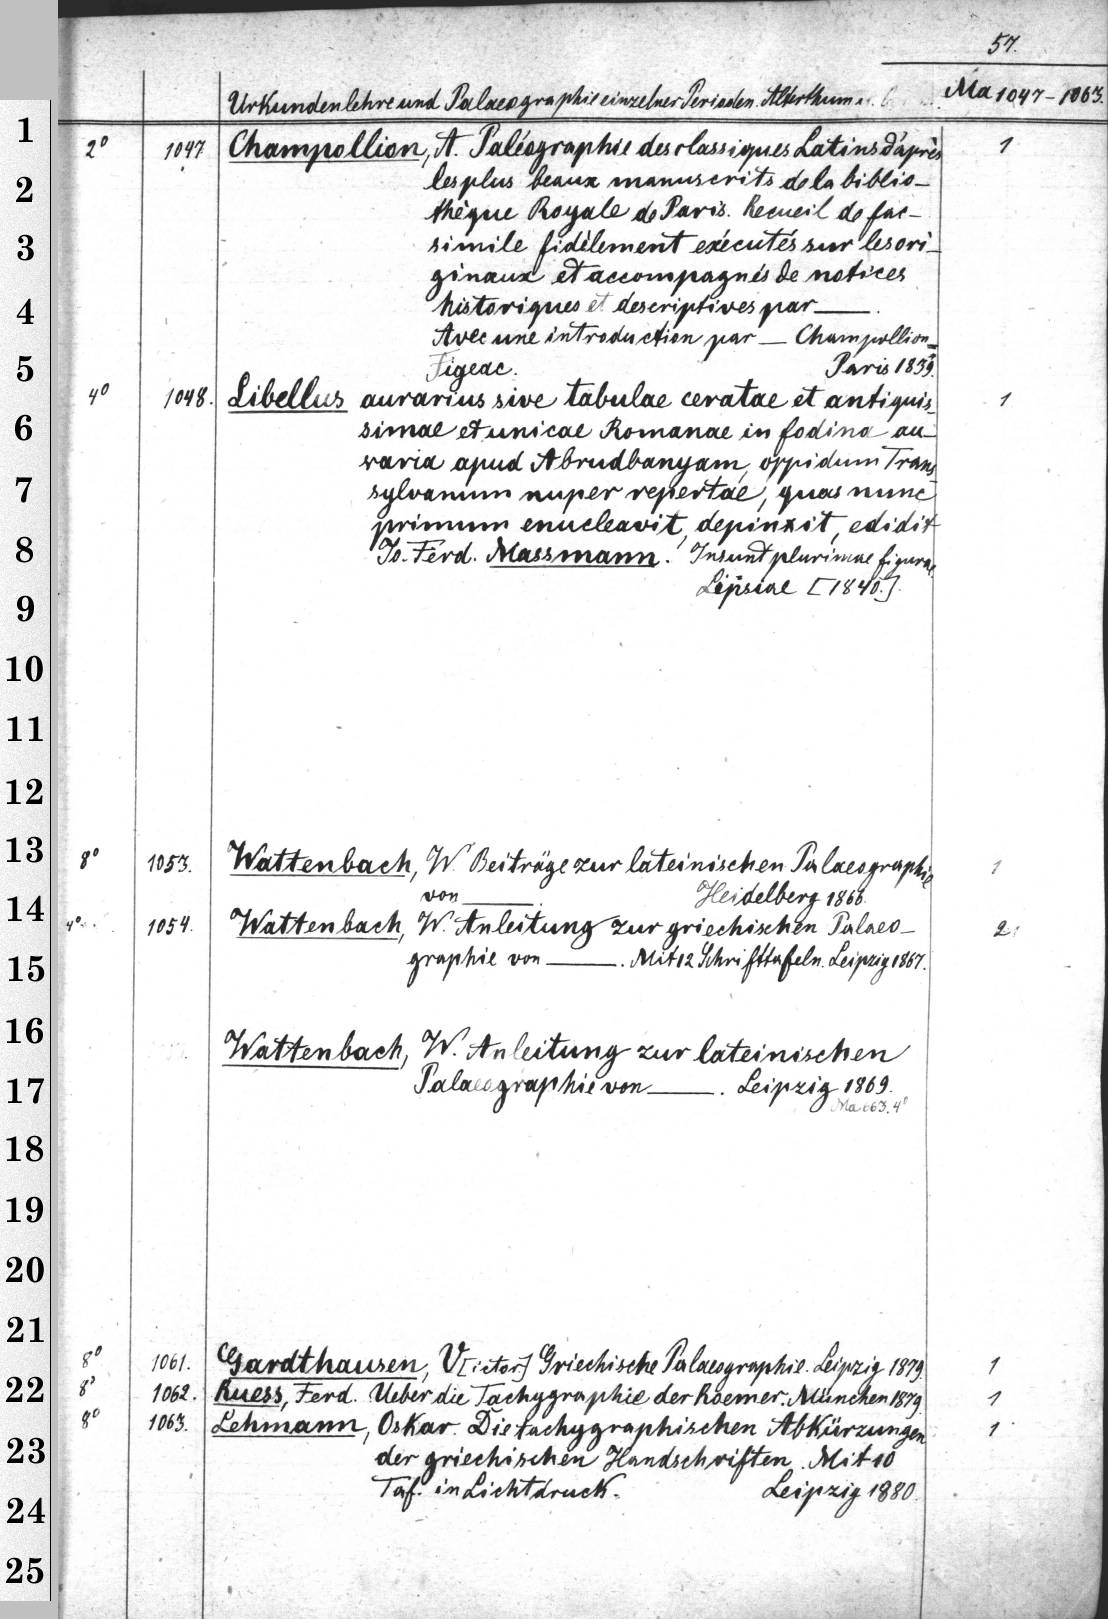 57.
Urkundenlehre und Palaeographie einzelner Perioden. Alterthum Ma 1047-1063.
2° 1047 Champollion, A. Paléographie des classiques Latins d'après 1
les plus beaux manuscrits de la biblio-
thèque Royale de Paris. Recueil de fac-
simile fidèlement exécutés sur les ori-
ginaux et accompagnés de notices
historiques et descriptives par ___.
Avec une introduction par — Champollion-
Figeac. Paris 1839.
4° 1048. Libellus aurarius sive tabulae ceratae et antiquis- 1
simae et unicae Romanae in fodina au-
raria apud Abrudbanyam, oppidum Trans-
sylvanum nuper repertae, quas nunc
primum enucleavit, depinxit, edidit
Jo. Ferd. Massmann. Insunt plurimae figurae.
Lipsiae [1840.]
8° 1053. Wattenbach, W. Beiträge zur lateinischen Palaeographie 1
von ___. Heidelberg 1866.
4° 1054. Wattenbach, W. Anleitung zur griechischen Palaeo- 2
graphie von ___. Mit 12 Schrifttafeln. Leipzig 1867.
Wattenbach, W. Anleitung zur lateinischen
Palaeographie von ___. Leipzig 1869.
4°
8° 1061. Gardthausen, V[ictor] Griechische Palaeographie. Leipzig 1879. 1
8° 1062. Ruess, Ferd. Ueber die Tachygraphie der Roemer. München 1879. 1
8° 1063. Lehmann, Oskar. Die tachygraphischen Abkürzungen 1
der griechischen Handschriften. Mit 10
Taf. in Lichtdruck. Leipzig 1880.
1
2
3
4
5
6
7
8
9
10
11
12
13
14
15
16
17
18
19
20
21
22
23
24
25